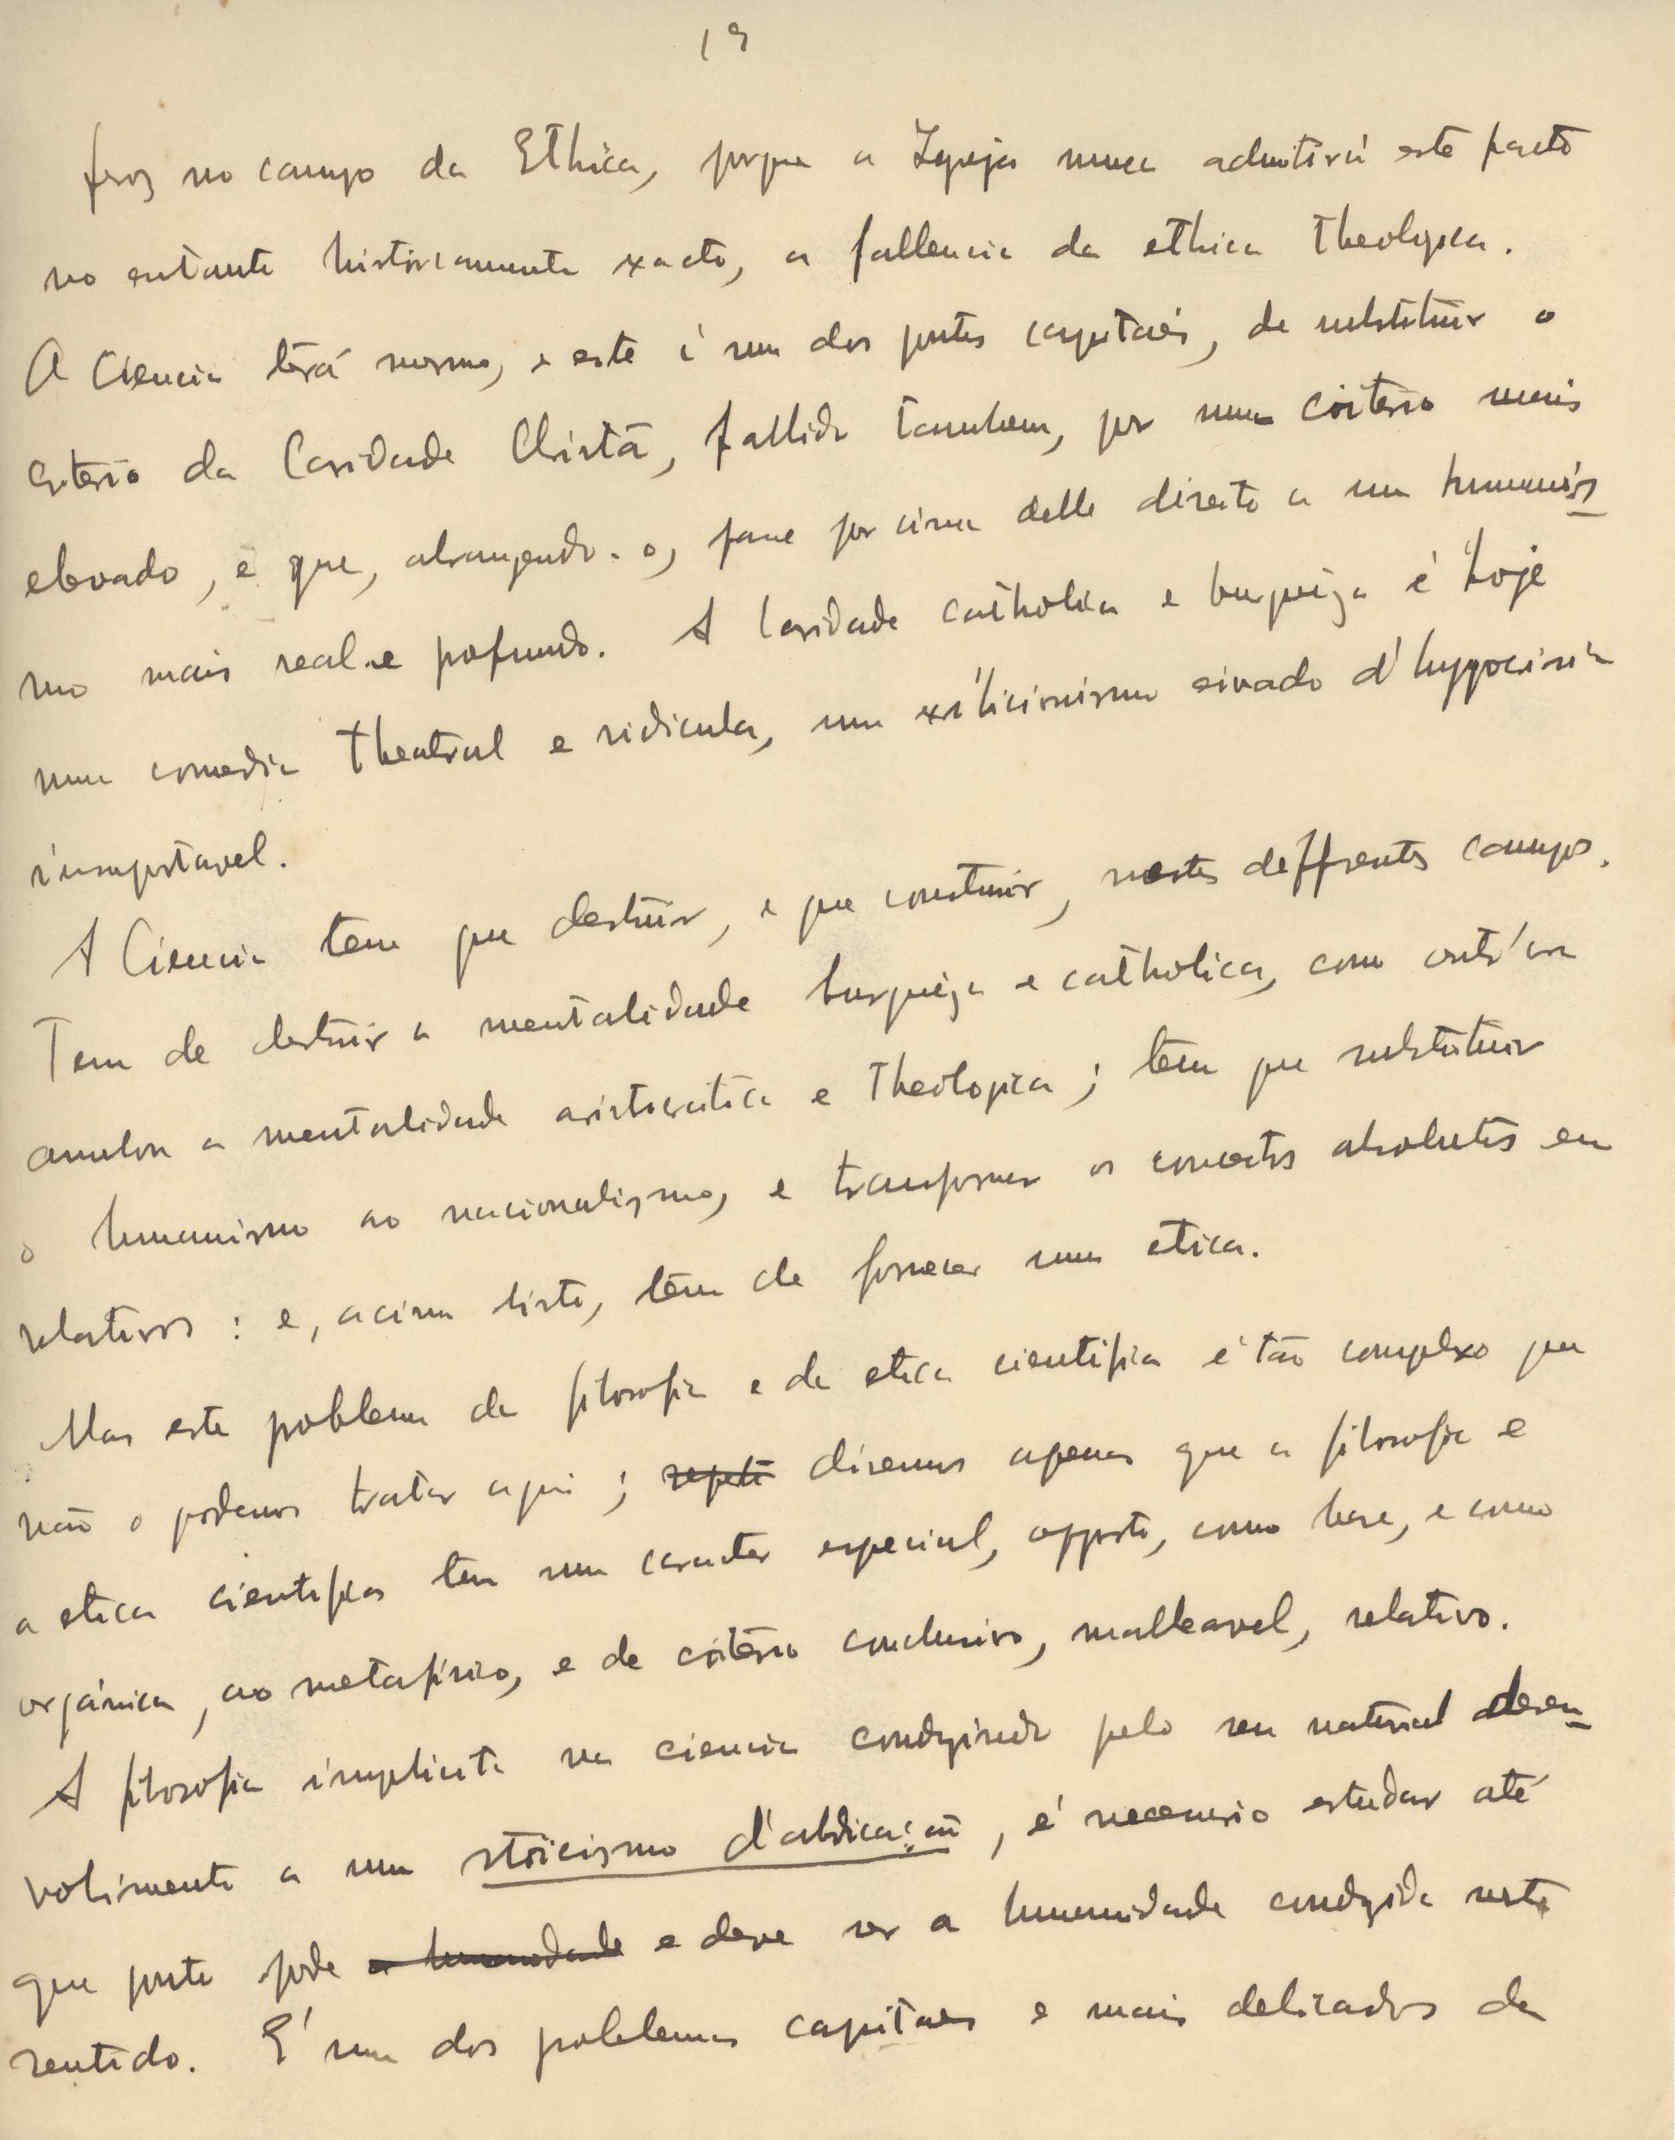 19
feroz no campo da Ethica, porque a Igreja nunca admitirá este facto
no entanto historicamente exacto, a fallencia da ethica theologica.
A Ciencia terá mesmo, e este é um dos pontos capitaes, de substituir o
criterio da Caridade Christã, fallido tambem, por um criterio mais
elevado, e que, abrangendo-o, passe por cima delle direito a um humanis
mo mais real e profundo. A Caridade catholica e burgueza é hoje
uma comedia theatral e ridicula, um exibicionismo eivado d'hyppocrisia
insuportavel.
A Ciencia tem que destruir, e que construir, nestes defferentes campos.
Tem de destruir a mentalidade burgueza e catholica, como outr'ora
annulou a mentalidade aristocratica e theologica; tem que substituir
o humanismo ao nacionalismo, e transformar os conceitos absolutos em
relativos: e, acima disto, tem de fornecer uma etica.
Mas este problema da filosofia e da etica cientifica é tão complexo que
não o podemos tratar aqui; repeti diremos apenas que a filosofia e
a etica cientificas tem um caracter especial, opposto, como base, e como
orgánica, ao metafísico, e de criterio conclusivo, malleavel, relativo.
A filosofia implicita na ciencia conduzindo pelo seu natural desen
volvimento a um stoicismo d'abdicação, é necessario estudar até
que ponto pode a humanidade e deve ser a humanidade conduzida neste
sentido. É um dos problemas capitaes e mais delicados da